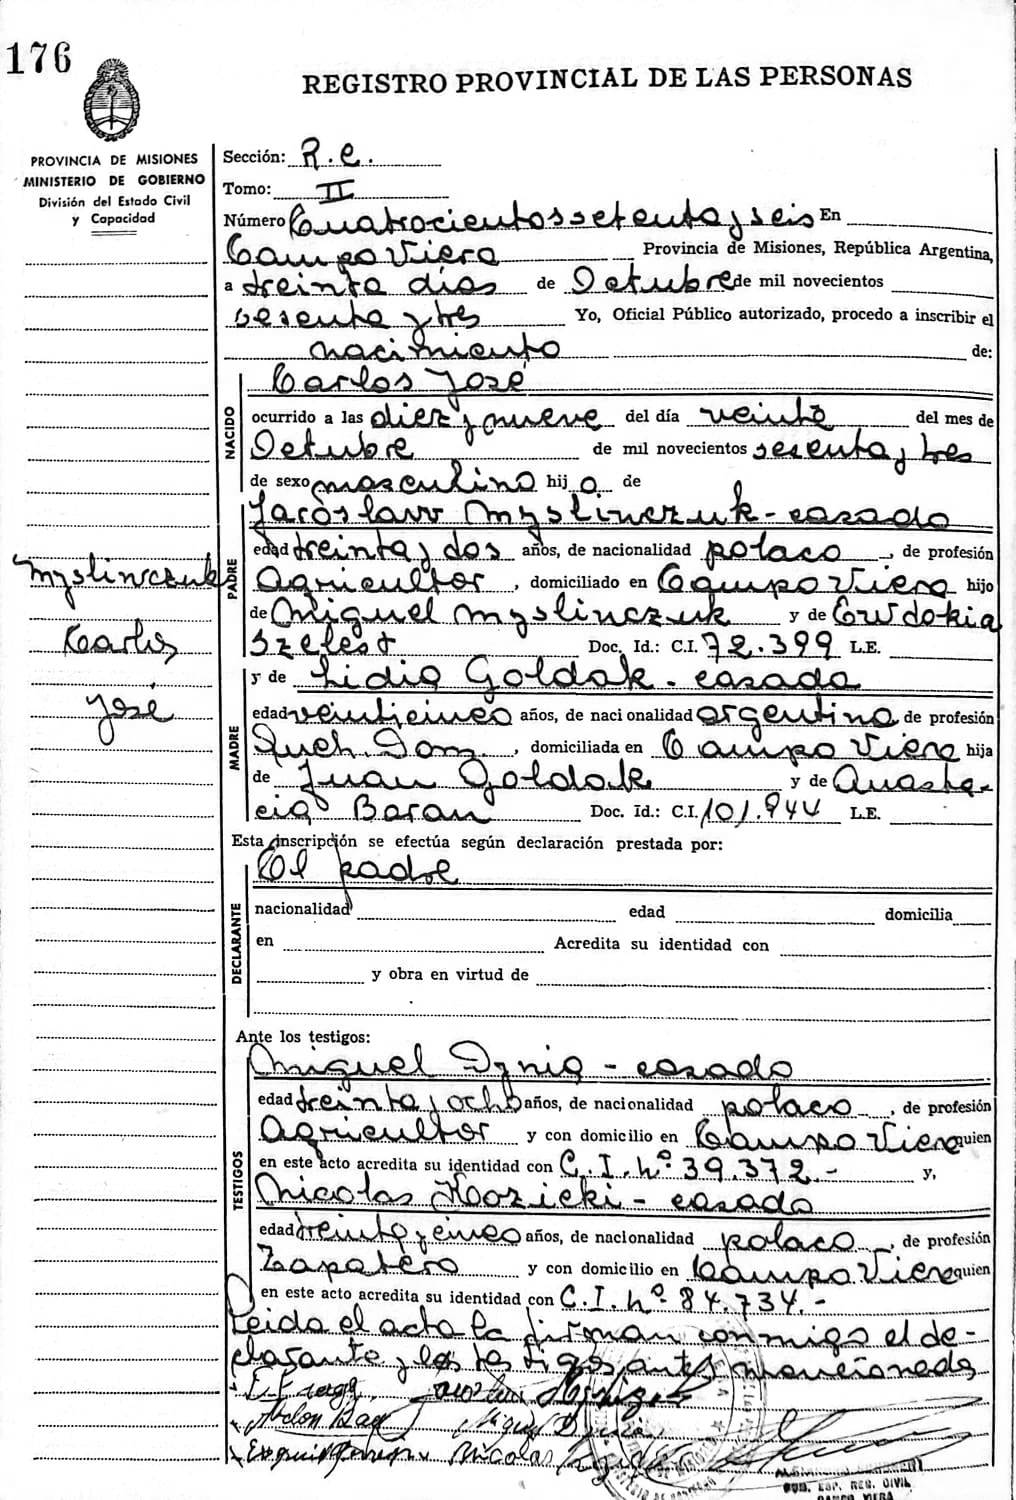 176
REGISTRO PROVINCIAL DE LAS PERSONAS
PROVINCIA DE MISIONES
MINISTERIO DE GOBIERNO
División del Estado Civil
y Capacidad
Sección: R.C.
Tomo: II
Número Cuatrocientos setenta y seis En
Campo Viera Provincia de Misiones, República Argentina,
a treinta días de Octubre de mil novecientos
sesenta y tres Yo, Oficial Público autorizado, procedo a inscribir el
nacimiento de:
Carlos José
NACIDO
ocurrido a las diez y nueve del día veinte del mes de
Octubre de mil novecientos sesenta y tres
de sexo masculino hijo de
Jaroslaw Myslinczuk - casado
PADRE
edad treinta y dos años, de nacionalidad polaco, de profesión
Agricultor, domiciliado en Campo Viera hijo
de Miguel Myslinczuk y de Ewdokia
Szelest Doc. Id.: C.I. 72.399 L.E.
Myslinczuk
Karlos
José
y de Lidia Goldak - casada
MADRE
edad veinticinco años, de nacionalidad argentina de profesión
Queh. Dom., domiciliada en Campo Viera hija
de Juan Goldak y de Anasta-
cia Baran Doc. Id.: C.I. 101.944 L.E.
Esta inscripción se efectúa según declaración prestada por:
El padre
DECLARANTE
nacionalidad edad domicilia
en Acredita su identidad con
y obra en virtud de
Ante los testigos:
Miguel Dynia - casado
TESTIGOS
edad treinta y ocho años, de nacionalidad polaco, de profesión
Agricultor y con domicilio en Campo Viera quien
en este acto acredita su identidad con C.I. nº. 39.372.- y,
Nicolas Kozicki - casado
edad treinta y cinco años, de nacionalidad polaco, de profesión
Zapatero y con domicilio en Campo Viera quien
en este acto acredita su identidad con C.I. nº. 84.734.-
Leida el acta la firman conmigo el de-
clarante y los testigos antes mencionados
Nicolas
REG. CIVIL
CAMPO VIERA